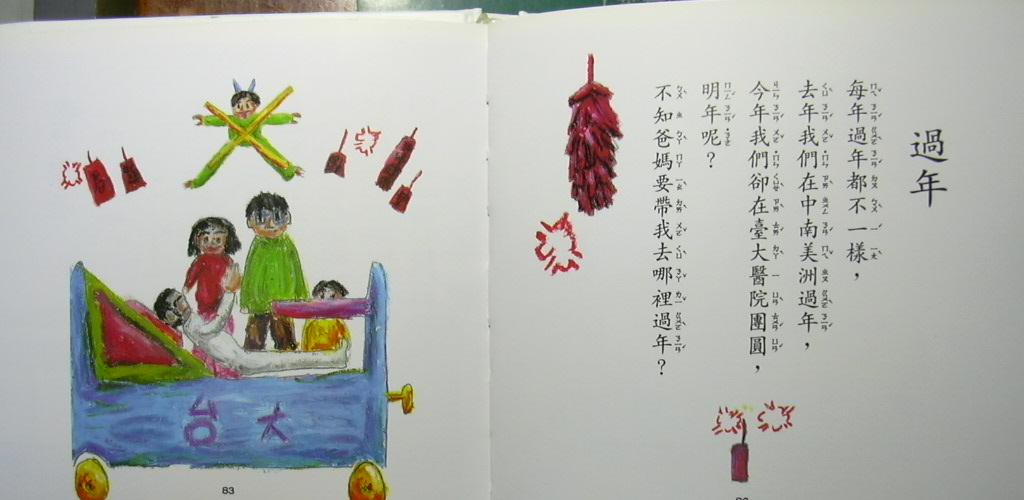 過年
每年過年都不一樣，
去年我們在中南美洲過年，
今年我們卻在臺大醫院團圓，
明年呢？
不知爸媽要帶我去哪裡過年？
台大
83